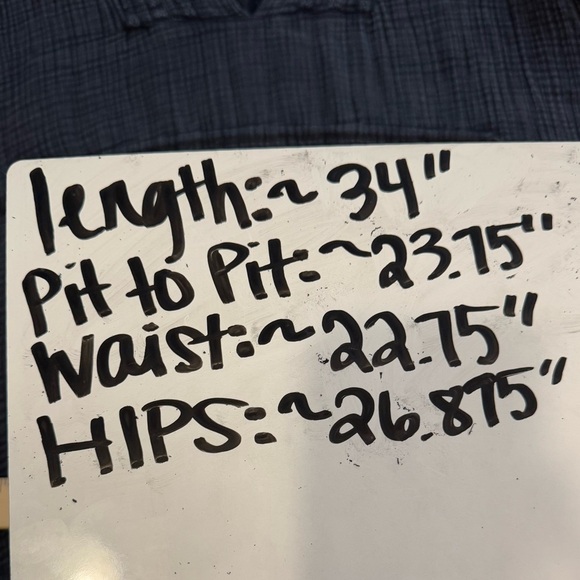 length:~ 34"
Pit to Pit:~23.75"
Waist:~22.75"
HIPS:~26.875"